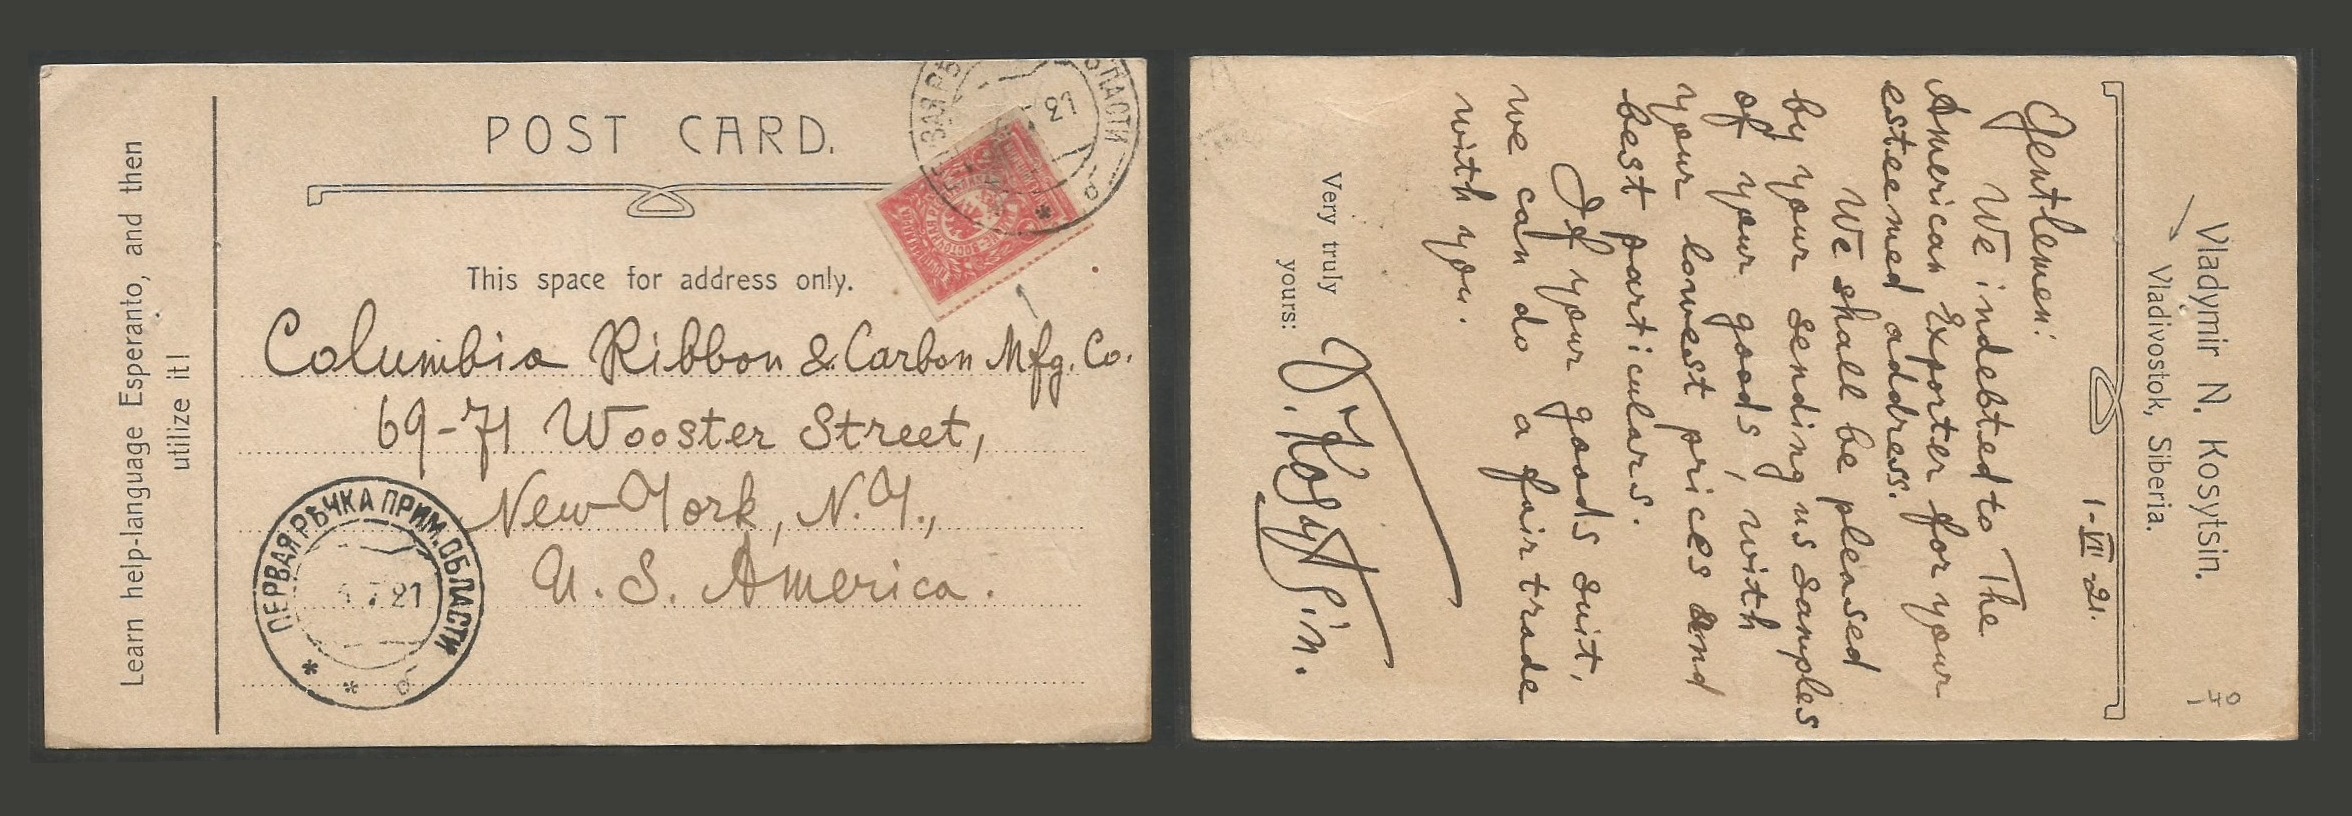 Learn help-language Esperanto, and then
utilize it!
POST CARD.
This space for address only.
Columbia Ribbon & Carbon Mfg. Co.
69-71 Wooster Street,
New-York, N.Y.,
U. S. America.
ПЕРВАЯ РѢЧКА ПРИМ. ОБЛАСТИ
7 21
б
21
Vladymir N. Kosytsin.
Vladivostok, Siberia.
1-VII-21.
Gentlemen:
We indebted to The
American Exporter for your
esteemed address.
We shall be pleased
by your sending us samples
of your goods, with
your lowest prices and
best particulars.
If your goods suit,
we can do a fair trade
with you.
Very truly
yours:
V. Kosytsin.